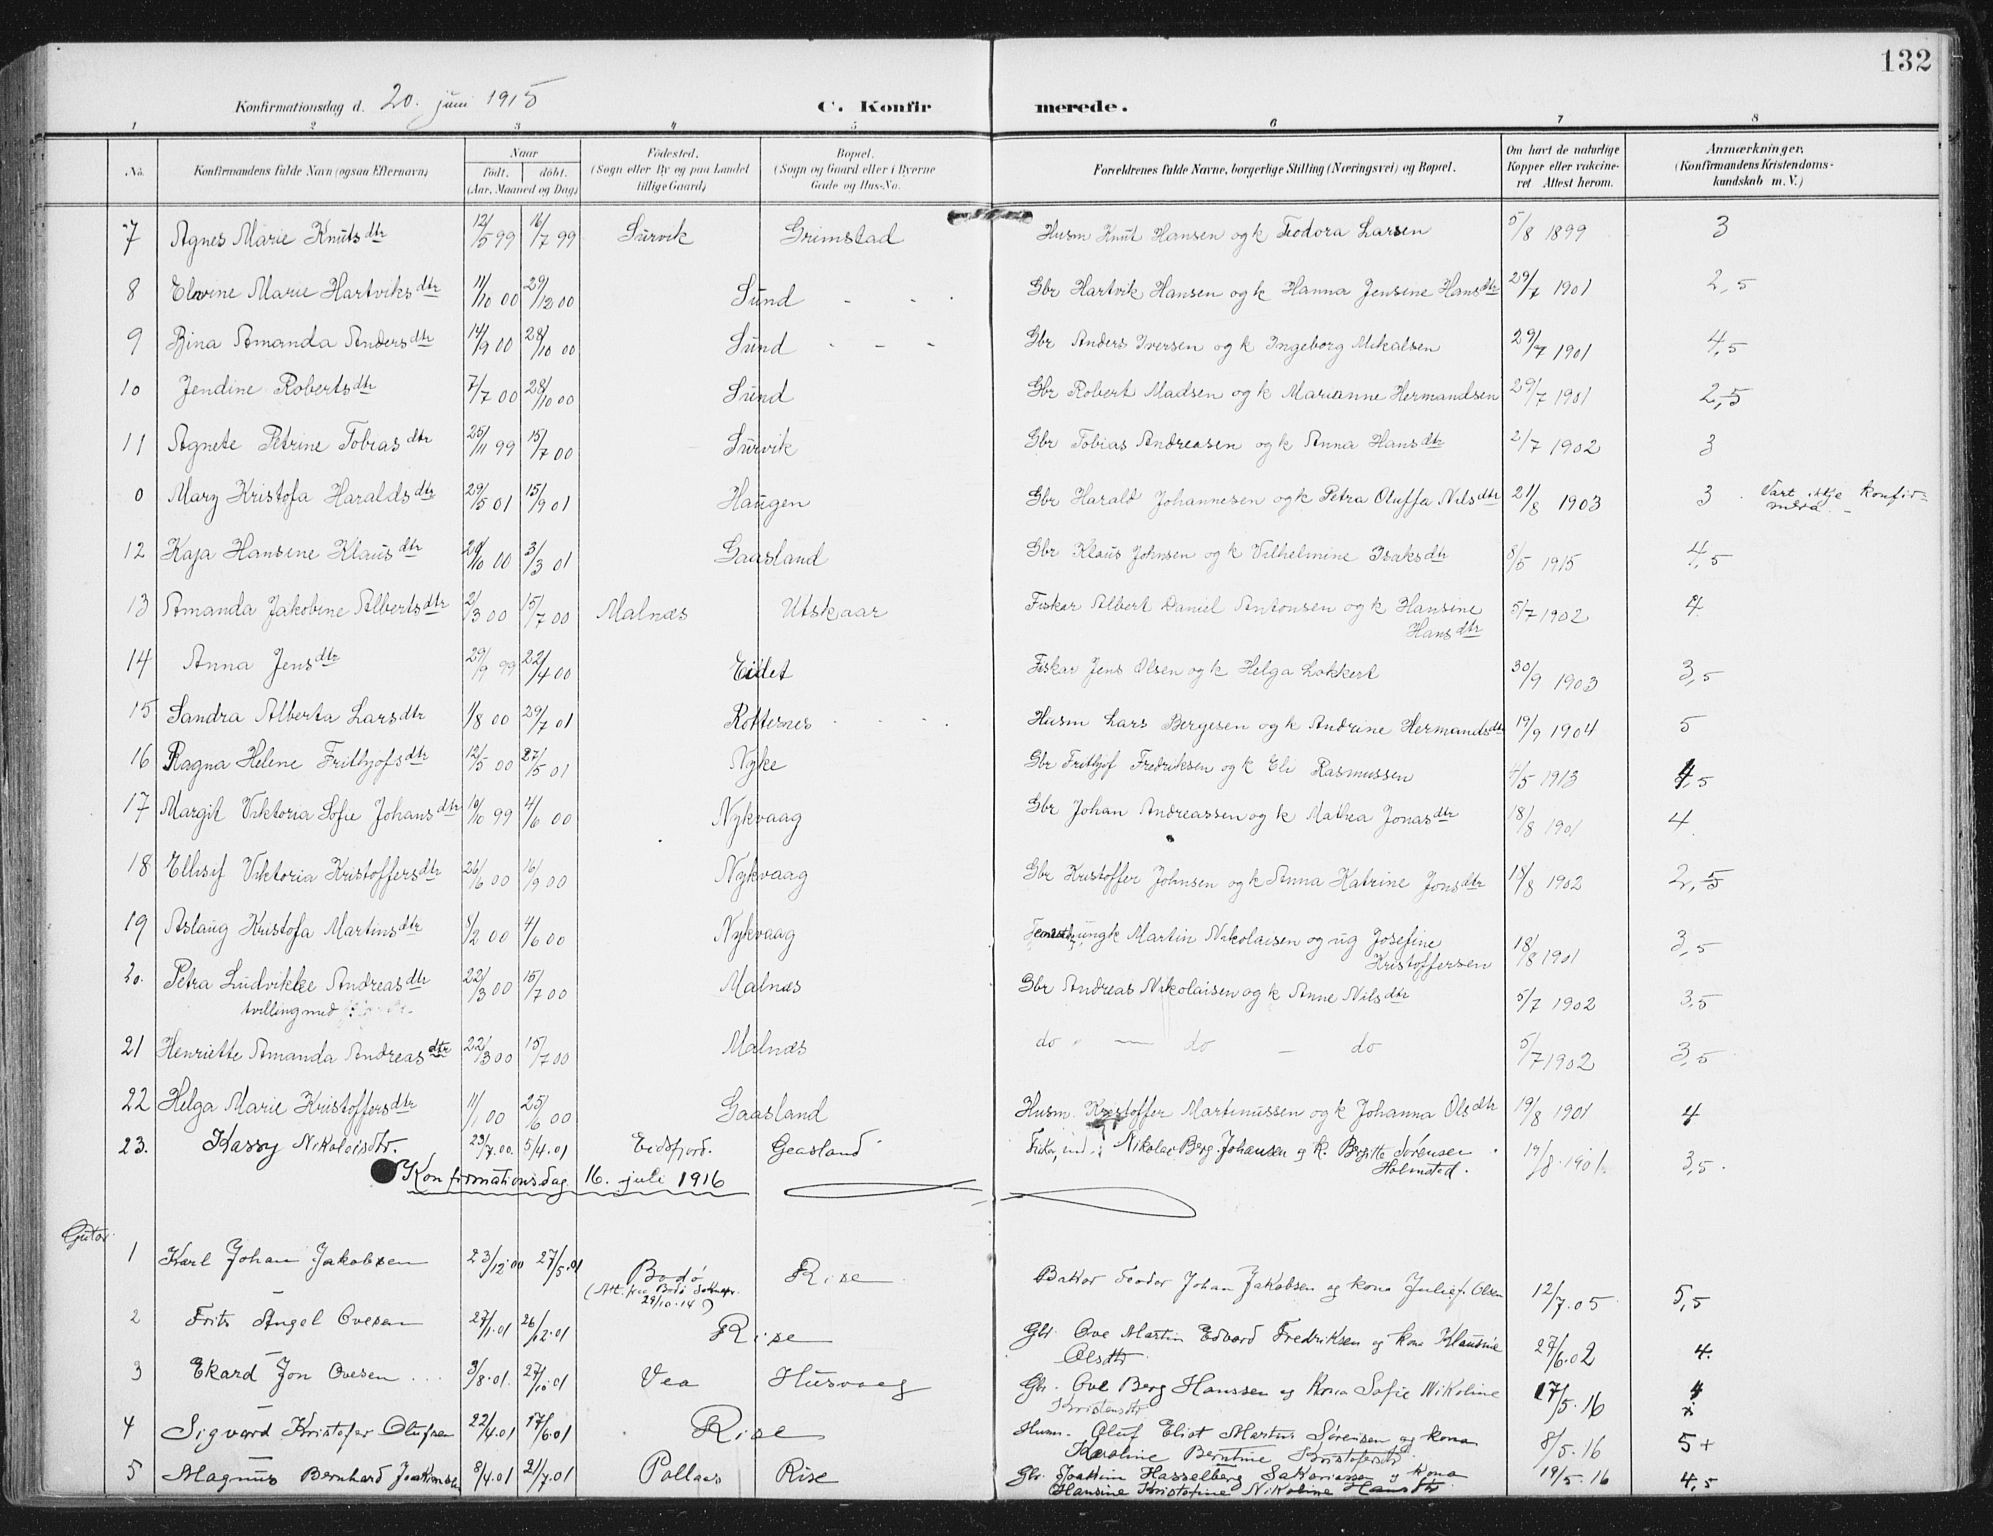 132
Konfirmationsdag d. 20. juni 1915 C. Konfir merede.
1 2 3 4 5 6 7 8
No. Konfirmandens fulde Navn (ogsaa Efternavn) Naar født. døbt. (Aar, Maaned og Dag) Fødested. (Sogn eller By og paa Landet tillige Gaard) Bopæl. (Sogn og Gaard eller i Byerne Gade og Hus-No. Forældrenes fulde Navne, borgerlige Stilling (Næringsvei) og Bopæl. Om havt de naturlige Kopper eller vakcineret Attest herom. Anmærkninger. (Konfirmandens Kristendomskundskab m. V.)
7 Agnes Marie Knutsdtr 12/5 99 16/7 99 Survik Grimstad Husm Knut Hansen og k Teodora Larsen 5/8 1899 3
8 Elvine Marie Hartviksdtr 11/10 00 29/12 00 Sund - - Gbr Hartvik Hansen og k Hanna Jensine Hansdtr 29/7 1901 2,5
9 Bina Amanda Andersdtr 14/9 00 28/10 00 Sund - - - Gbr Anders Iversen og k Ingeborg Mikalsen 29/7 1901 4,5
10 Jendine Robertsdtr 7/7 00 28/10 00 Sund Gbr Robert Madsen og k Marianne Hermandsen 29/7 1901 2,5
11 Agnete Petrine Tobiasdtr 25/11 99 15/7 00 Survik Gbr Tobias Andreasen og k Anna Hansdtr 2/7 1902 3
0 Mary Kristofa Haraldsdtr 29/5 01 15/9 01 Haugen Gbr Harald Johannesen og k Petra Oluffa Nilsdtr 21/8 1903 3. Vart ikje konfirmera.
12 Kaja Hansine Klausdtr 29/10 00 3/3 01 Gaasland Gbr Klaus Johnsen og k Vilhelmine Isaksdtr 8/5 1915 4,5
13 Amanda Jakobine Albertsdtr 2/3 00 15/7 00 Malnæs Utskaar Fiskar Albert Daniel Antonsen og k Hansine 5/7 1902 4
Hansdtr
14 Anna Jensdtr 29/9 99 22/4 00 Eidet Fiskar Jens Olsen og k Helga Lokkert 30/9 1903 3,5
15 Sandra Alberta Larsdtr 1/8 00 29/7 01 Rotternes - - - Husm Lars Bergesen og k Andrine Hermandsdtr 19/9 1904 5
16 Ragna Helene Frithjofsdtr 12/5 00 27/5 01 Nyke Gbr Frithjof Fredriksen og k Eli Rasmussen 4/5 1913 4,5
17 Margit Viktoria Sofie Johansdtr 10/10 99 4/6 00 Nykvaag Gbr Johan Andreassen og k Mathea Jonasdtr 18/8 1901 4
18 Ellisif Viktoria Kristoffersdtr 26/6 00 16/9 00 Nykvaag Gbr Kristoffer Johnsen og k Anna Katrine Jonsdtr 18/8 1902 2,5
19 Aslaug Kristofa Martinsdtr 8/2 00 4/6 00 Nykvaag ungk Martin Nikolaisen og ug Josefine 18/8 1901 3,5
Kristoffersen
20. Petra Ludvikke Andreasdtr 22/3 00 15/7 00 Malnæs Gbr Andreas Nikolaisen og k Anne Nilsdtr 5/7 1902 3,5
tvilling med
21 Henriette Amanda Andreasdtr 22/3 00 15/7 00 Malnæs do - do - do 5/7 1902 3,5
22 Helga Marie Kristoffersdtr 11/1 00 25/6 00 Gaasland Husm. Kristoffer Martinussen og k Johanna Olsdtr 19/8 1901 4
23. Kassy Nikolaisdtr. 23/7.00. 5/4.01 Eidsfjord. Geasland Nikolai Berg. Johansen og k. Birgitte Sørensen 19/8.1901. 3,5.
Holmstad.
Konfirmationsdag 16. juli 1916
Gutar.
1 Karl Johan Jakobsen 23/12.00 27/5.01 Bodø Rise Bakar Teodor Johan Jakobsen og kona Julie Olsen 12/7.05 5,5
(Att. fra Bodø 29/10.14)
2 Frits Angel Ovesen 27/1.01 26/12.01 Rise Gbr. Ove Martin Edvard Fredriksen og kona Klausine 27/6.02 4.
Olsdtr
3 Ekard Jon Ovesen ... 3/8.01. 27/10.01 Vea Husvaag Gbr. Ove Berg Hanssen og Kona Sofie Nikoline 17/5.16 4
Kristensdtr
4 Sigvard Kristofer Olufsen 22/4.01 17/6.01 Rise Husm. Oluf Eliot Martin Sørensen og kona 8/5.16 5+
Karoline Berntine Kristofersdtr
5 Magnus Bernhard Joakimsen 8/4.01 21/7.01 Pollaas Rise Gbr. Joakim Hasselberg Sakariassen og kona 19/5.16 4,5
Hansine Kristofine Nikoline Hansdtr